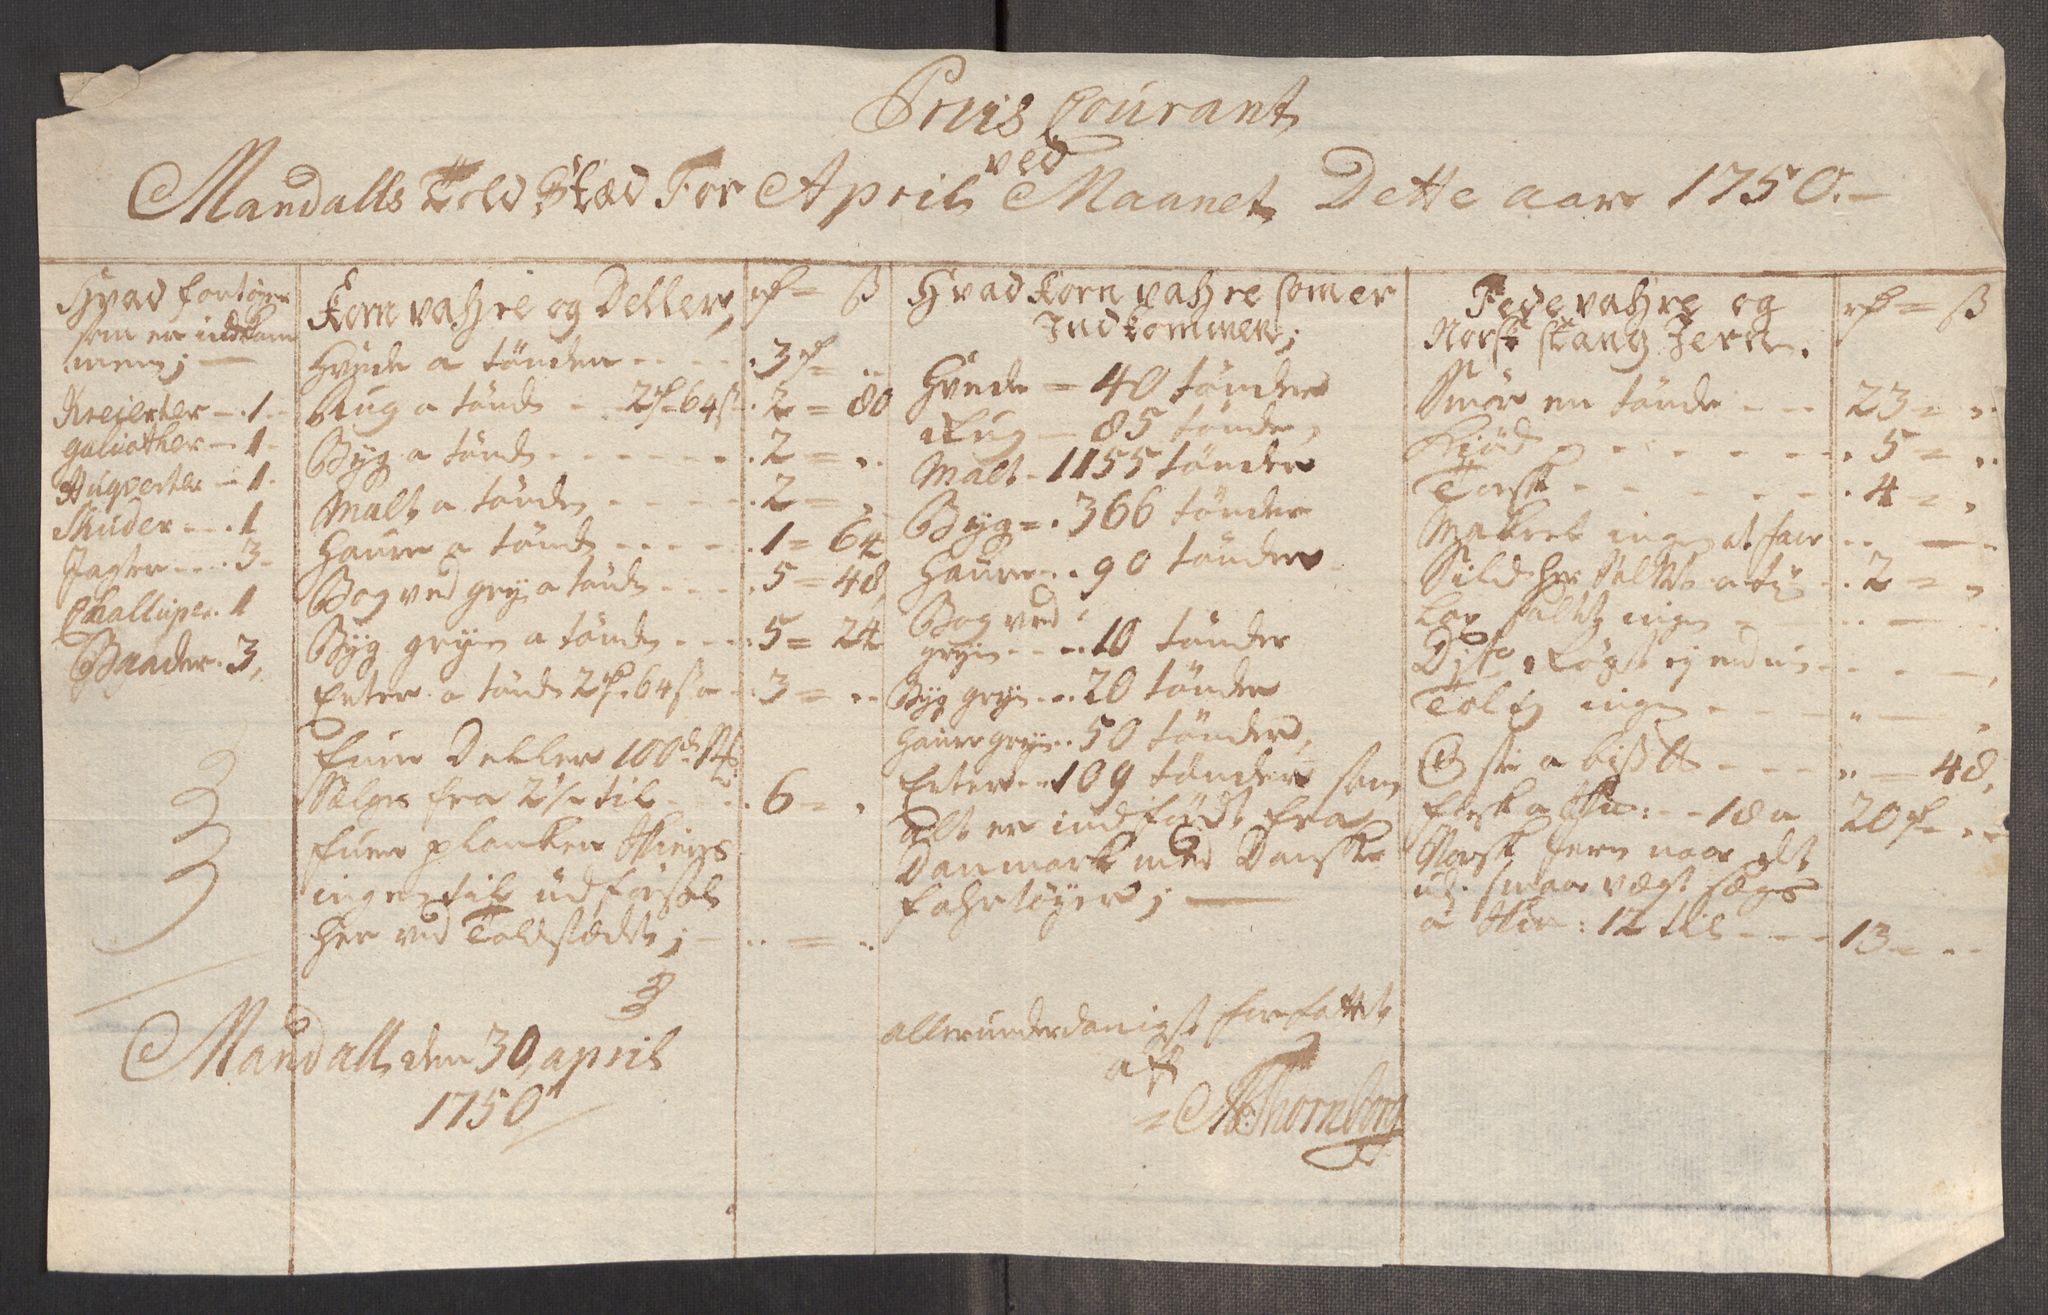 Priis Courant
ved
Mandalls Told Stæd For April Maanet Dette aar 1750.-
Hvad fortøyer
som er indkom
men;
Kreierter - 1 -
galiother - 1 -
Huqverter - 1 -
Skuder - - 1
Jagter - - 3 -
Challuper. 1
Baader. 3,
Korn vahre og Deller, rf = ß
Hvede a tønden - - - 3 rf = ..
Rug a tønde - 2 rf 64 ß 2 = 80
Byg a tønde - - - - - 2 = ..
Malt a tønde - - - - 2 = ..
Haure a tønde - - - - 1 = 64
Bogved gryn a tønde - - - 5 = 48
Byg gryn a tønde - - - 5 = 24
Erter a tønde 2 rf 64 ß a - 3 = ..
fuur Deller 100de
Sælges fra 2 til - - 6 = .
fuur plancker
ingen til udførsel
her ved Toldstædet; - .. = ..
Hvad Korn vahre som er
Indkommen;
Hvede = 40 tønder
Rug - 85 tønder
Malt - 1155 tønder
Byg = . 366 tønder
Haure - . 90 tønder
Bogved
gryn - - . 10 tønder
Byg gryn . . 20 tønder
Haure gryn . . 50 tønder,
Erter - - 109 tønder som
alt er indført fra
Danmark med Danske
fahrtøyer;
Fede vahre og rf = ß
Norsk stang Jern.
Smør en tønde - - 23 = ..
Kiød - - - - - - 5 = ..
Torsk - - - - - 4 = .
Makrel ingen at faae - - -
Sild her Saltet a tø - 2 = .
ingen - - -
Dito Røget ej - - -
Talig ingen - - - - .. - .
Oste a bis ℔ - - - .. = 48,
fersk a - - 18 a 20 rf - ..
Norsk Jern naar det
ud. smaa vægt sælges
a : 12 til - - - 13 = ..
Mandall den 30 april
1750
allerunderdanigst forfattet
aff
Thornborg